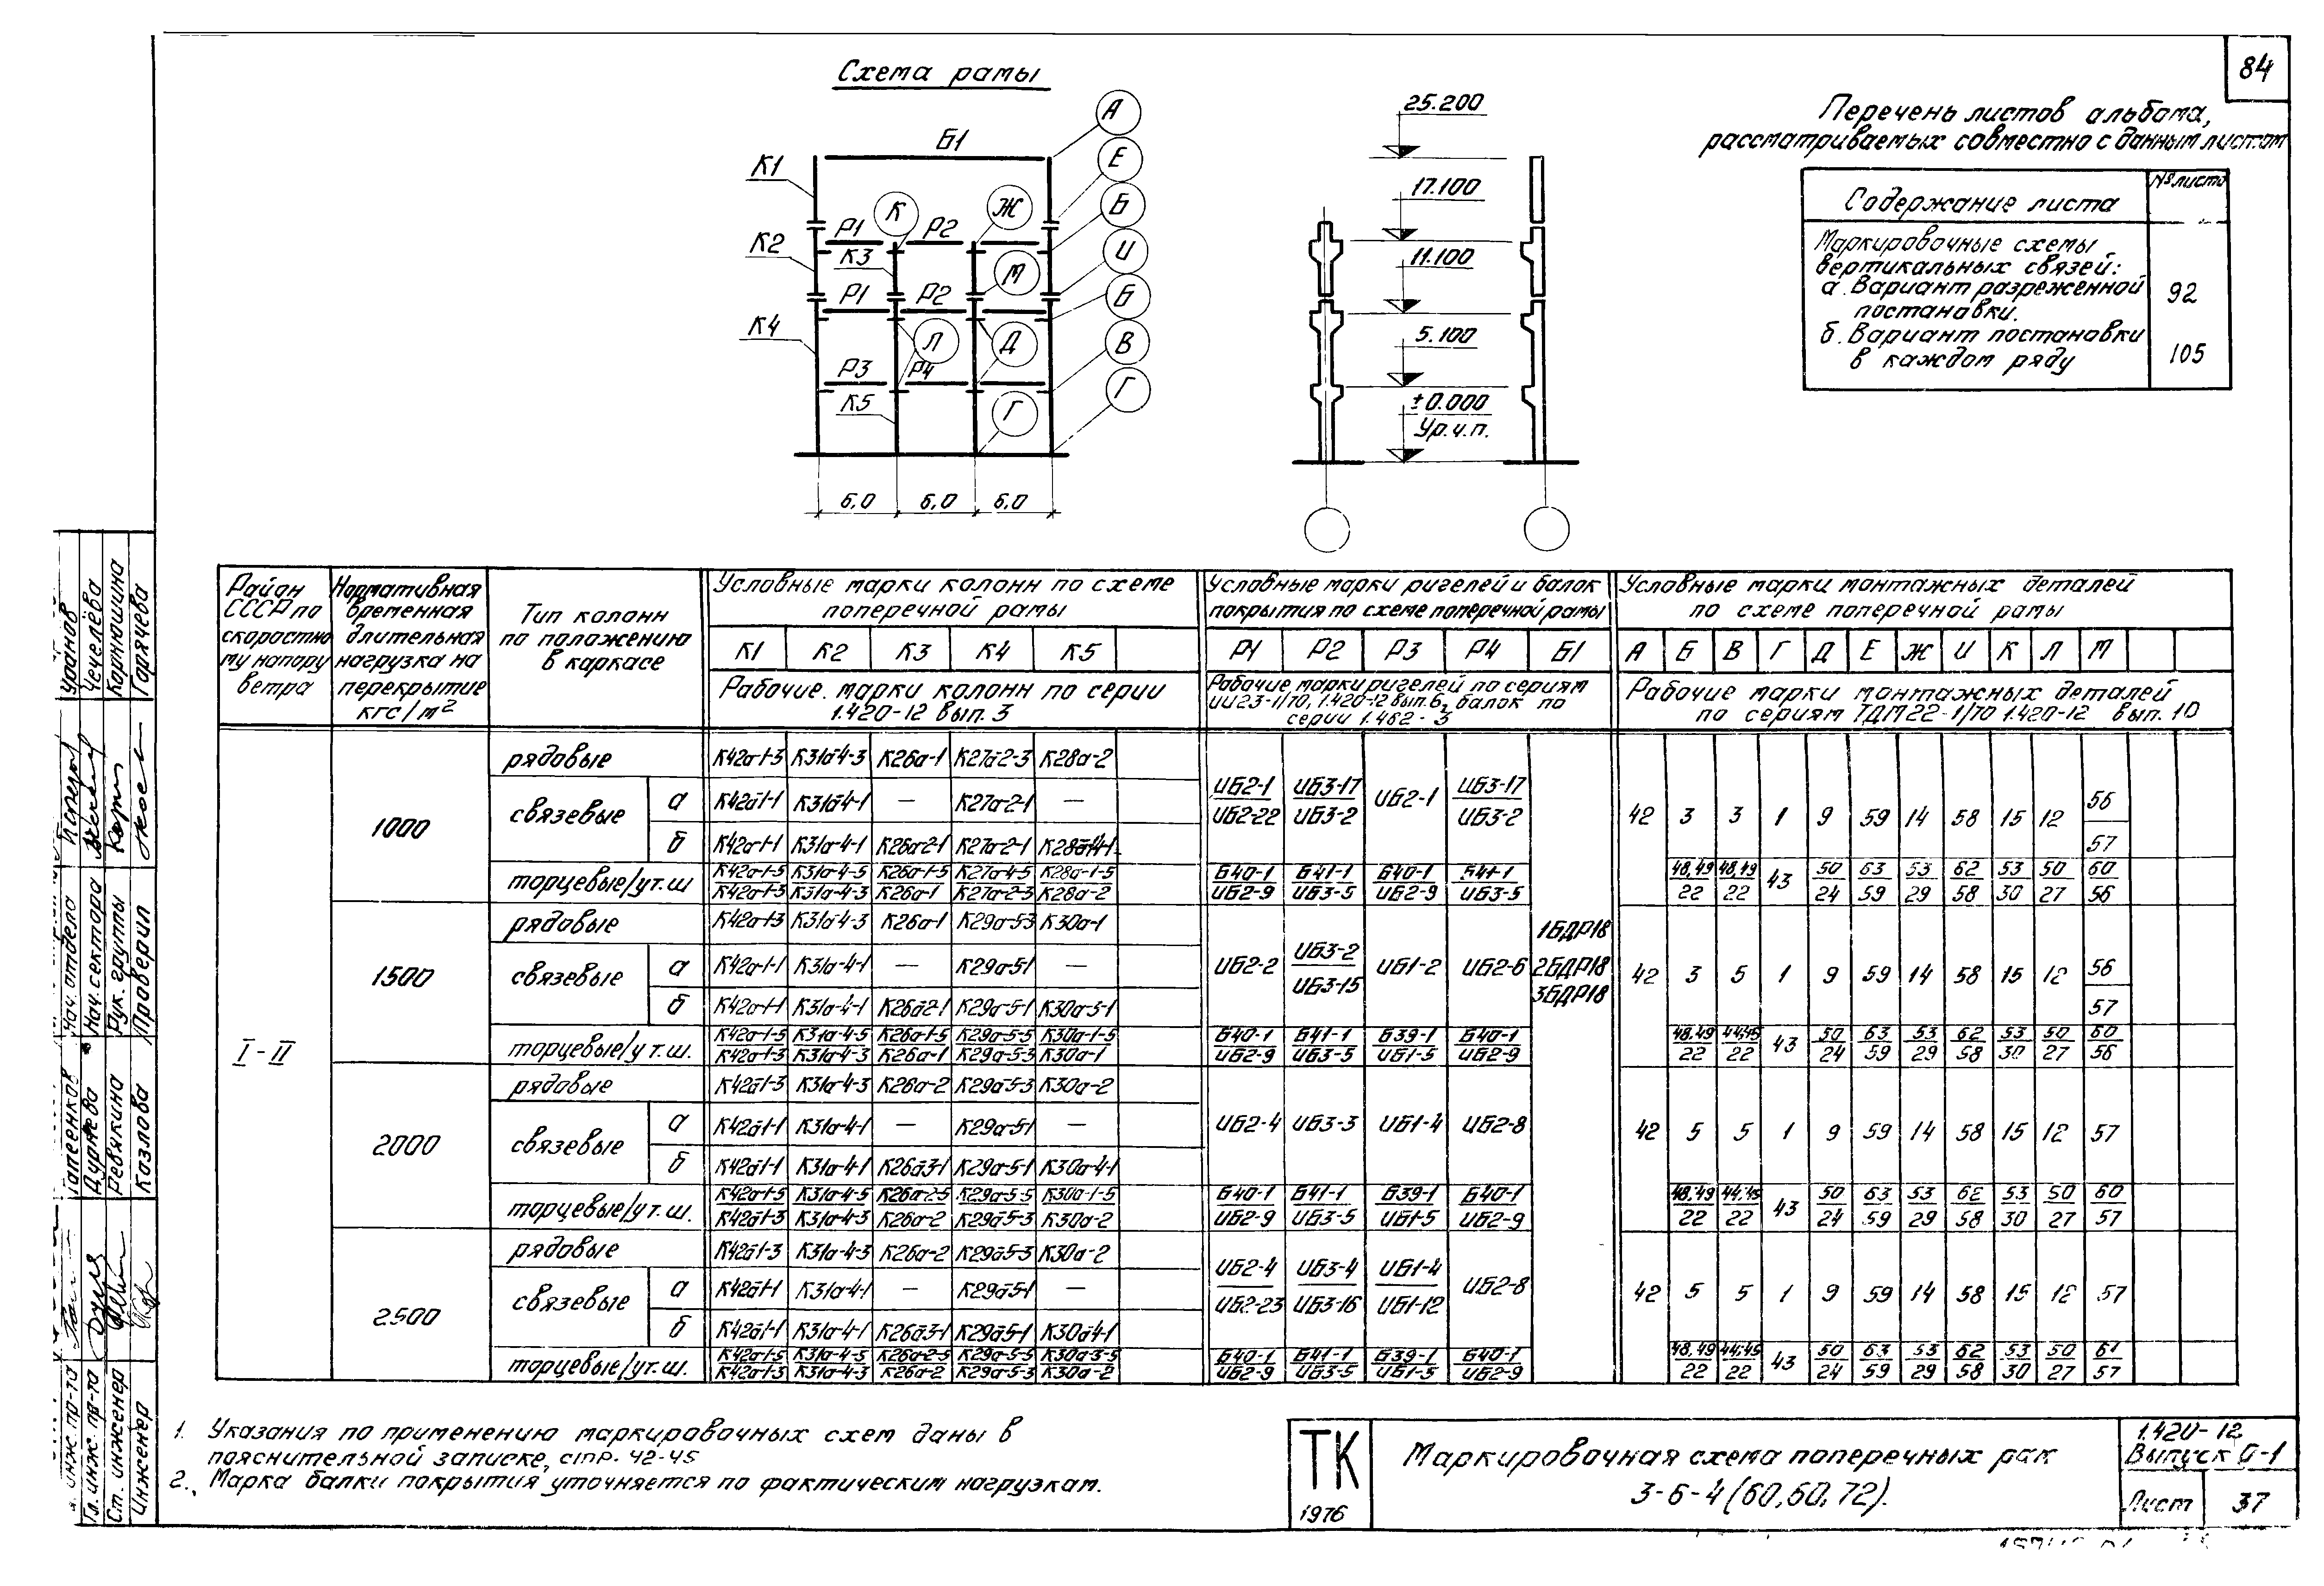 84
Схема рамы
Перечень листов альбома,
рассматриваемых совместно с данным листом
Содержание листа | № листа
Маркировочные схемы
вертикальных связей:
а. Вариант разреженной
постановки. | 92
б. Вариант постановки
в каждом ряду | 105
К1 Б1 А
Е
К Ж Б
К2 Р1 Р2
К3 И
М
Р1 Р2 Б
К4
Л Д В
Р3 Р4
К5 Г Г
6,0 6,0 6,0
25.200
17.100
11.100
5.100
±0.000
Ур.ч.п.
Район СССР по скоростному напору ветра
Нормативная временная длительная нагрузка на перекрытие кгс/м²
Тип колонн по положению в каркасе
Условные марки колонн по схеме поперечной рамы
К1 К2 К3 К4 К5
Рабочие марки колонн по серии 1.420-12 вып. 3
Условные марки ригелей и балок покрытия по схеме поперечной рамы
Р1 Р2 Р3 Р4 Б1
Рабочие марки ригелей по сериям ИИ23-1/70, 1.420-12 вып.6, балок по серии 1.462-3
Условные марки монтажных деталей по схеме поперечной рамы
А Б В Г Д Е Ж И К Л М
Рабочие марки монтажных деталей по сериям ТДМ22-1/70 1.420-12 вып. 10
I-II
1000
рядовые К42а-1-3 К31а-4-3 К26а-1 К27а-2-3 К28а-2
связевые а К42а-1-1 К31а-4-1 — К27а-2-1 —
б К42а-1-1 К31а-4-1 К26а-2-1 К27а-2-1
ИБ2-1/ИБ2-22 ИБ3-17/ИБ3-2 ИБ2-1 ИБ3-17/ИБ3-2
42 3 3 1 9 59 14 58 15 12 56/57
торцевые/у т.ш. К42а-1-5/К42а-1-3 К31а-4-5/К31а-4-3 К26а-1-5/К26а-1 К27а-4-5/К27а-2-3 К28а-1-5/К28а-2
Б40-1/ИБ2-9 Б41-1/ИБ3-5 Б40-1/ИБ2-9 Б41-1/ИБ3-5
48,49/22 48,49/22 43 50/24 63/59 53/29 62/58 53/30 50/27 60/56
1БДР18
2БДР18
3БДР18
1500
рядовые К42а-1-3 К31а-4-3 К26а-1 К29а-5-3 К30а-1
связевые а К42а-1-1 К31а-4-1 — К29а-5-1 —
б К42а-1-1 К31а-4-1 К26а-2-1 К29а-5-1 К30а-3-1
ИБ2-2 ИБ3-2/ИБ3-15 ИБ1-2 ИБ2-6
42 3 5 1 9 59 14 58 15 12 56/57
торцевые/у т.ш. К42а-1-5/К42а-1-3 К31а-4-5/К31а-4-3 К26а-1-5/К26а-1 К29а-5-5/К29а-5-3 К30а-1-5/К30а-1
Б40-1/ИБ2-9 Б41-1/ИБ3-5 Б39-1/ИБ1-5 Б40-1/ИБ2-9
48,49/22 44,45/22 43 50/24 63/59 53/29 62/58 53/30 50/27 60/56
2000
рядовые К42а-1-3 К31а-4-3 К26а-2 К29а-5-3 К30а-2
связевые а К42а-1-1 К31а-4-1 — К29а-5-1 —
б К42а-1-1 К31а-4-1 К26а-3-1 К29а-5-1 К30а-4-1
ИБ2-4 ИБ3-3 ИБ1-4 ИБ2-8
42 5 5 1 9 59 14 58 15 12 57
торцевые/у т.ш. К42а-1-5/К42а-1-3 К31а-4-5/К31а-4-3 К26а-2-5/К26а-2 К29а-5-5/К29а-5-3 К30а-1-5/К30а-2
Б40-1/ИБ2-9 Б41-1/ИБ3-5 Б39-1/ИБ1-5 Б40-1/ИБ2-9
48,49/22 44,45/22 43 50/24 63/59 53/29 62/58 53/30 50/27 60/57
2500
рядовые К42а-1-3 К31а-4-3 К26а-2 К29а-5-3 К30а-2
связевые а К42а-1-1 К31а-4-1 — К29а-5-1 —
б К42а-1-1 К31а-4-1 К26а-3-1 К29а-5-1 К30а-4-1
ИБ2-4/ИБ2-23 ИБ3-4/ИБ3-16 ИБ1-4/ИБ1-12 ИБ2-8
42 5 5 1 9 59 14 58 15 12 57
торцевые/у т.ш. К42а-1-5/К42а-1-3 К31а-4-5/К31а-4-3 К26а-2-5/К26а-2 К29а-5-5/К29а-5-3 К30а-3-5/К30а-2
Б40-1/ИБ2-9 Б41-1/ИБ3-5 Б39-1/ИБ1-5 Б40-1/ИБ2-9
48,49/22 44,45/22 43 50/24 63/59 53/29 62/58 53/30 50/27 61/57
1. Указания по применению маркировочных схем даны в
пояснительной записке, стр. 42-45
2. Марка балки покрытия уточняется по фактическим нагрузкам.
ТК
1976
Маркировочная схема поперечных рам
3-6-4 (60,60,72).
1.420-12
Выпуск 0-1
Лист 37
Нач. отдела Уранов
Нач. сектора Чечелёва
Рук. группы Корнюшина
Проверил Горячева
Гл. инж. пр-та
Ст. инженер Ревякина
Инженер Козлова